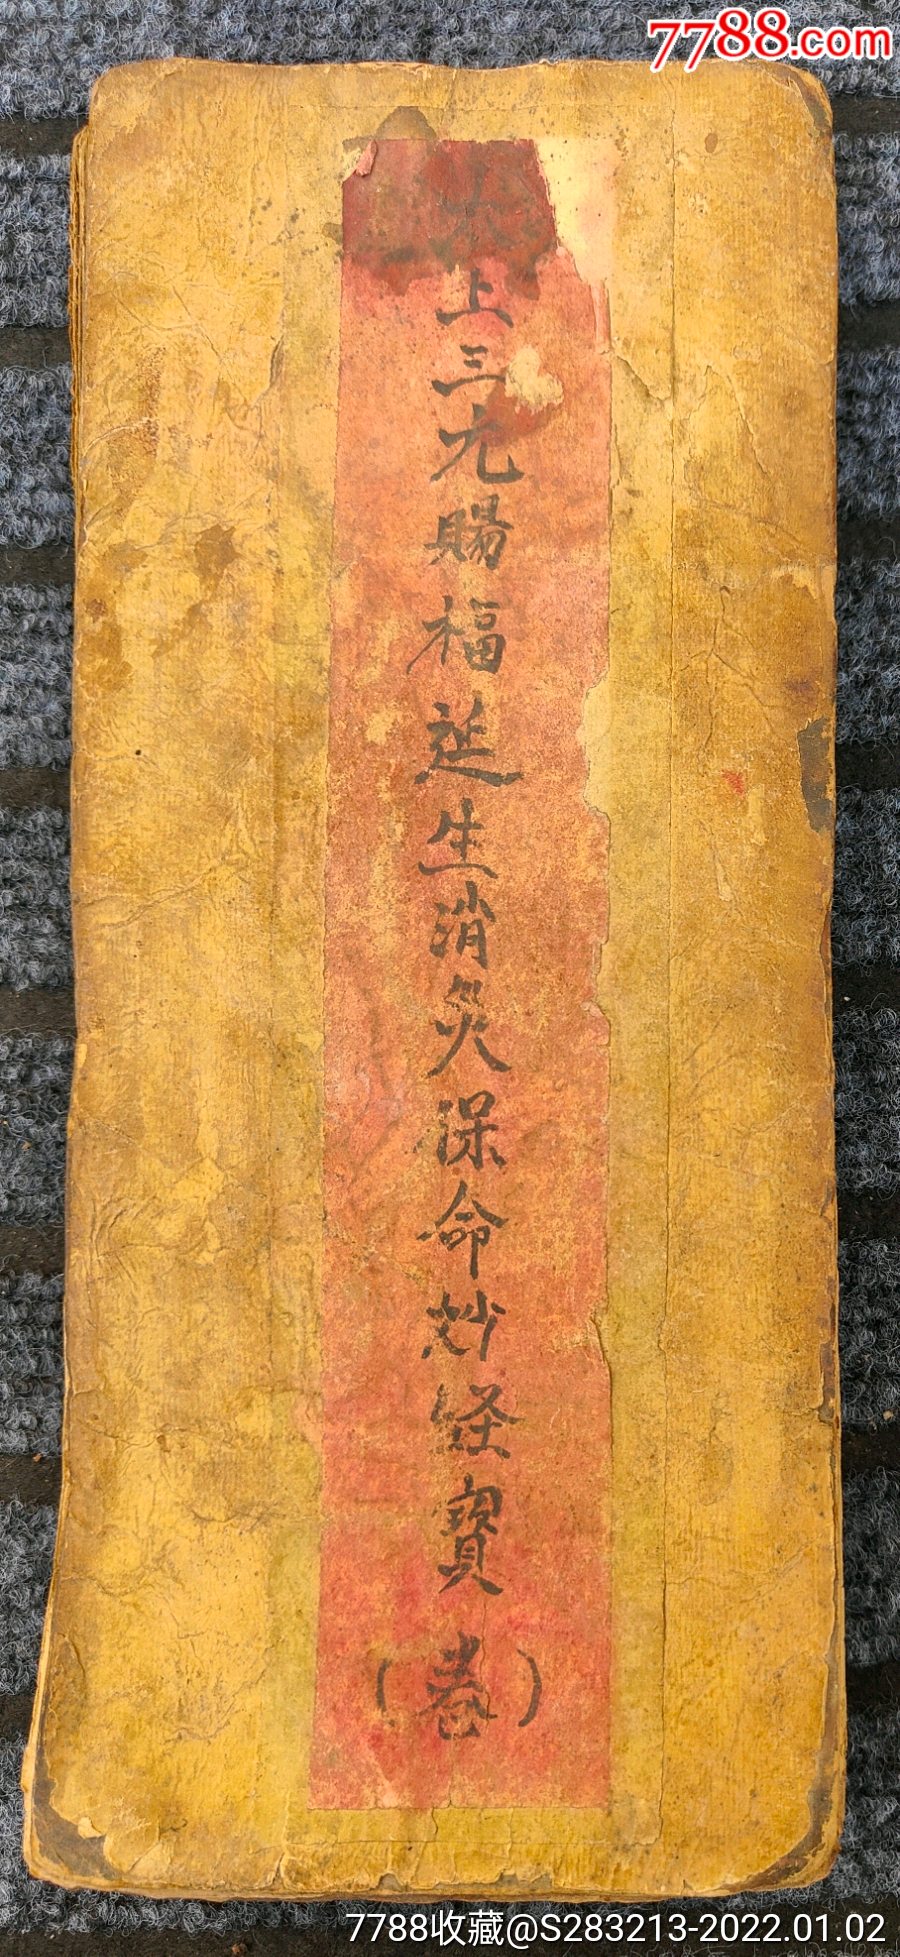 7788.com
太上三元賜福延生消災保命妙経寳(卷)
7788收藏@S283213-2022.01.02